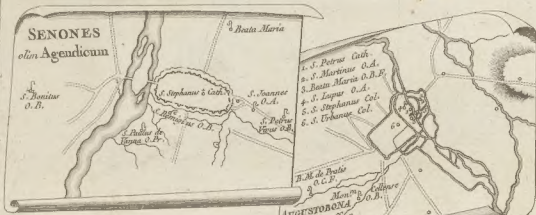 SENONES
olim Agendicum
Beata Maria
S. Bonitus
O.B.
S. Stephanus Cath.
S. Joannes
O.A.
S. Petrus
Vivus O.B.
O.B.
S. Paulus de
O.Pr.
1. S. Petrus Cath.
2. S. Martinus O.A.
3. Beata Maria O.B.F.
4. S. Lupus O.A.
5. S. Stephanus Col.
6. S. Urbanus Col.
B.M. de Pratis
O.C.F.
Mont. Cellense
O.B.
AUGUSTOBONA